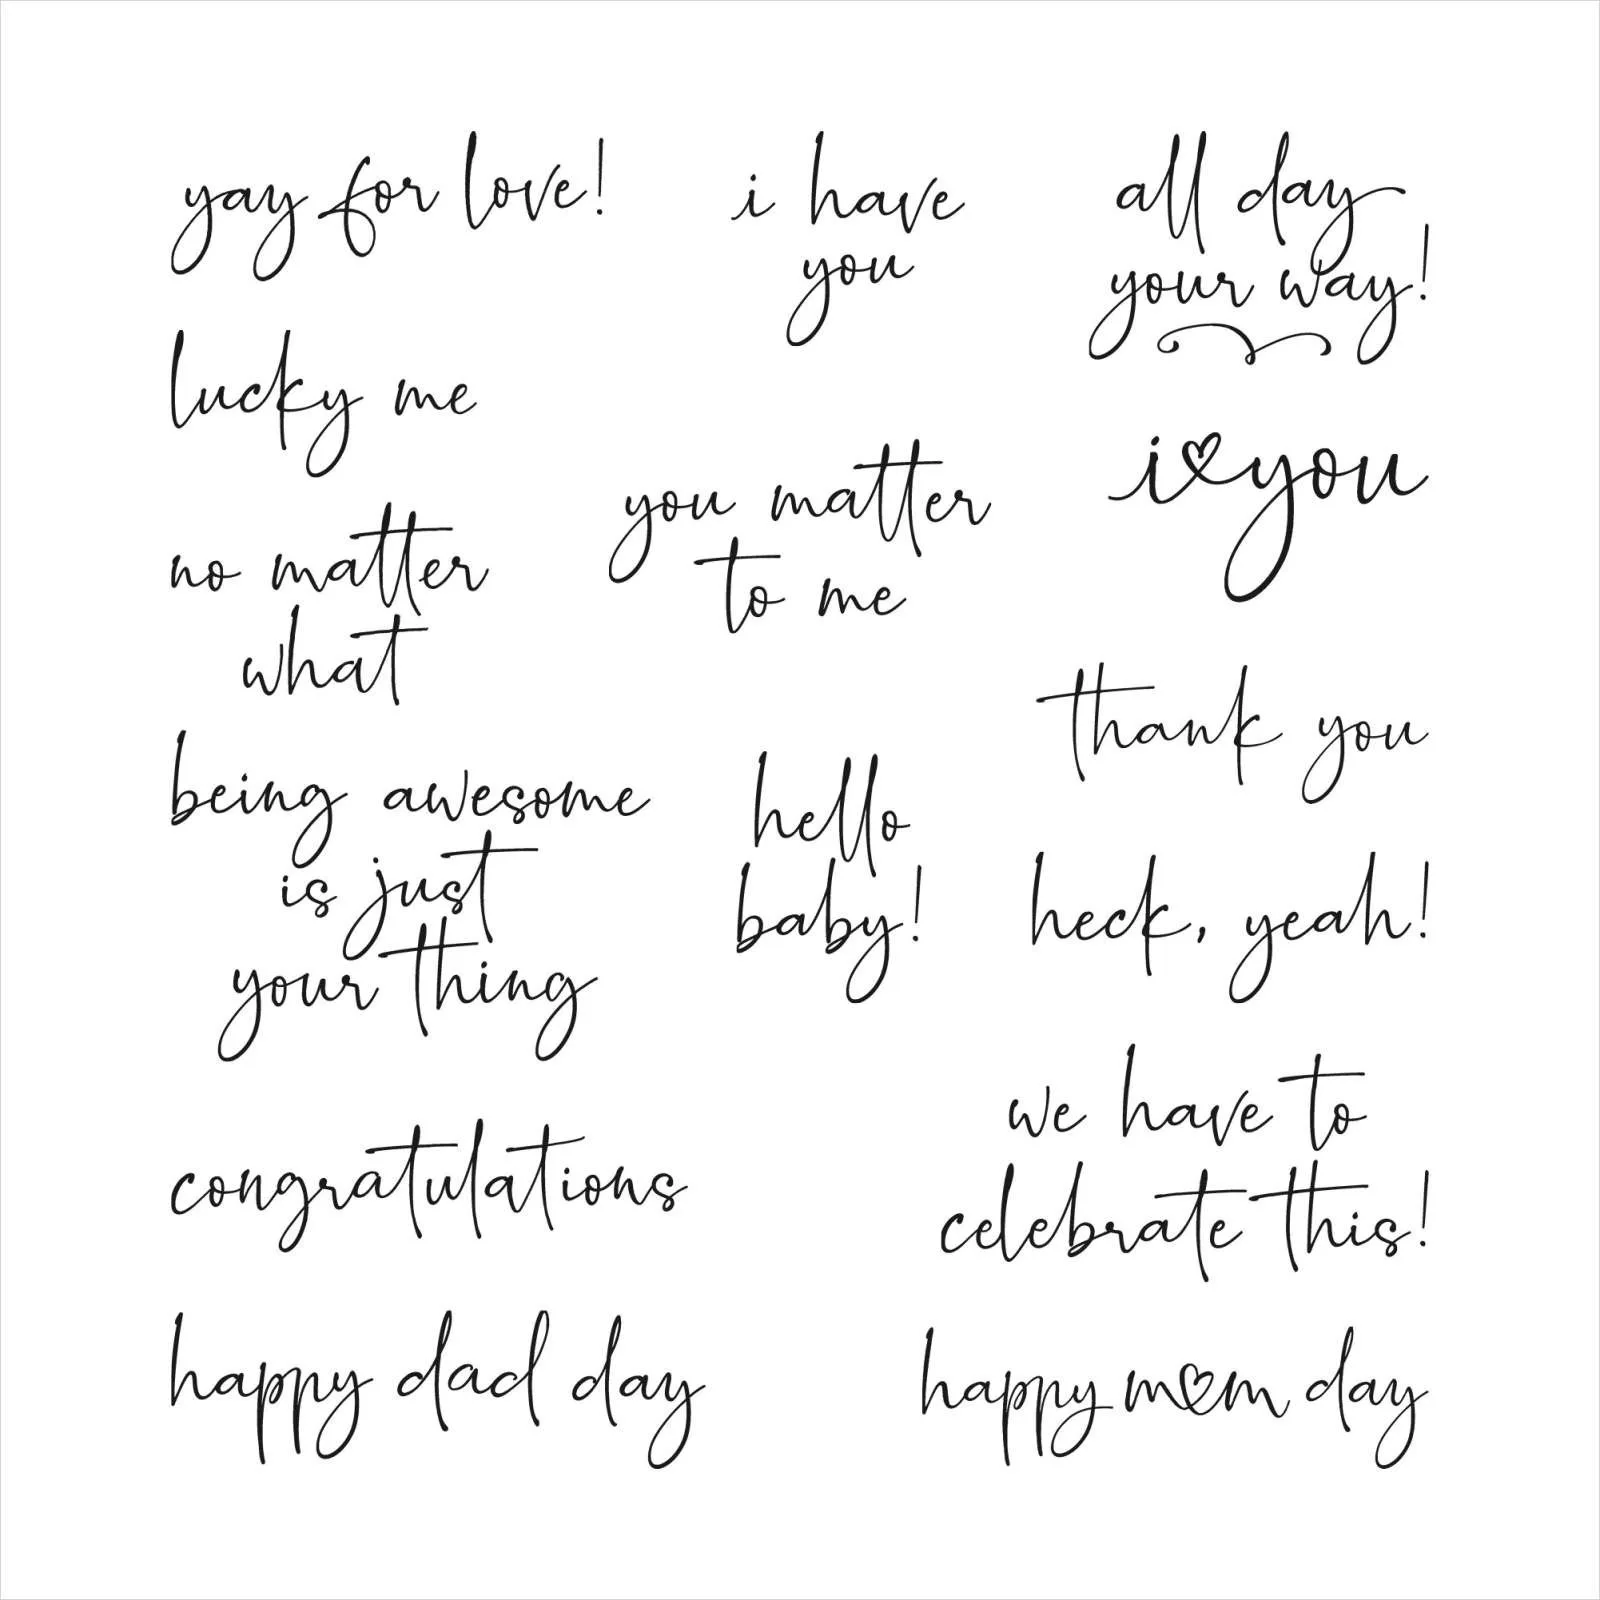 yay for love!
i have
you
all day
your way!
lucky me
i you
you matter
to me
no matter
what
thank you
being awesome
is just
your thing
hello
baby!
heck, yeah!
we have to
celebrate this!
congratulations
happy dad day
happy mom day